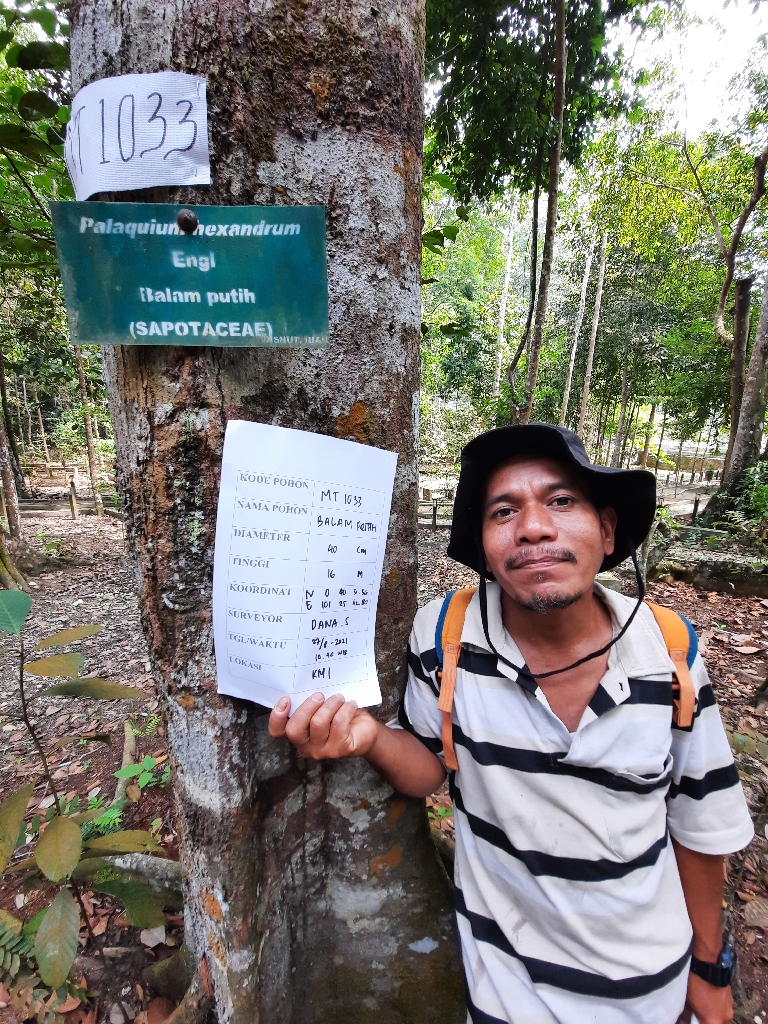 MT 1033
Palaquium hexandrum
Engl
Balam putih
(SAPOTACEAE)
KODE POHON MT 1033
NAMA POHON BALAM PUTIH
DIAMETER 40 Cm
TINGGI 16 M
KOORDINAT N 0 40
E 101 25
SURVEYOR DANA.S
TGL/WAKTU 27/8-2021
10.40 WIB
LOKASI KM 1